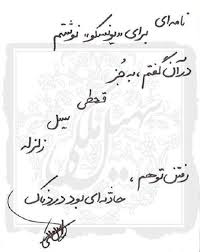 نامه‌ای
برای «یونسکو» نوشتم
در آن گفتم، به جز
قحطی
سیل
زلزله
رفتن تو هم،
حادثه‌ای بود دردناک